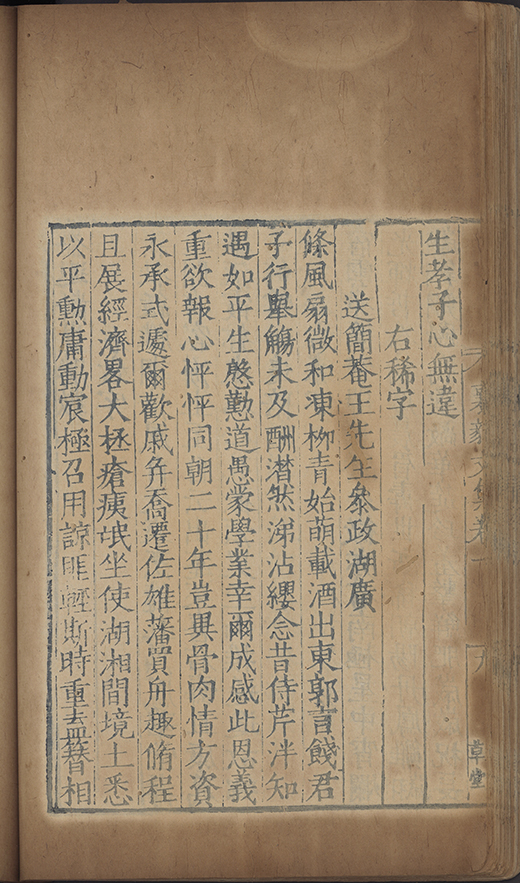 草堂
生孝子心無違
右稀字
送簡菴王先生叅政湖廣
條風扇微和凍栁青始萌載酒出東郭言餞君
子行舉觴未及酬潸然涕沾纓念昔侍芹泮知
遇如平生慇懃道愚蒙學業幸爾成感此恩義
重欲報心怦怦同朝二十年豈異骨肉情方資
永承式遽爾歡戚并喬遷佐雄藩買舟趣脩程
且展經濟畧大拯瘡痍氓坐使湖湘間境土悉
以平勳庸動宸極召用諒匪輕斯時重盍簪相